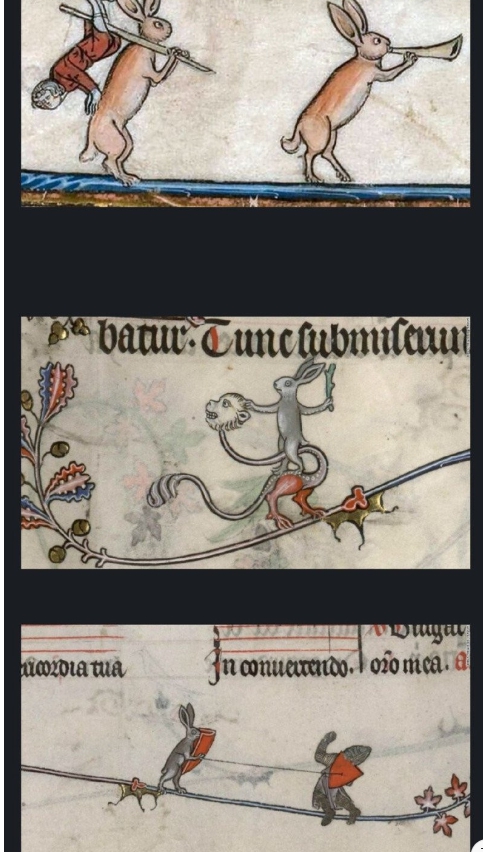 batur. Tunc submiserun
ricordia tua
In convertendo.
oro mea. a